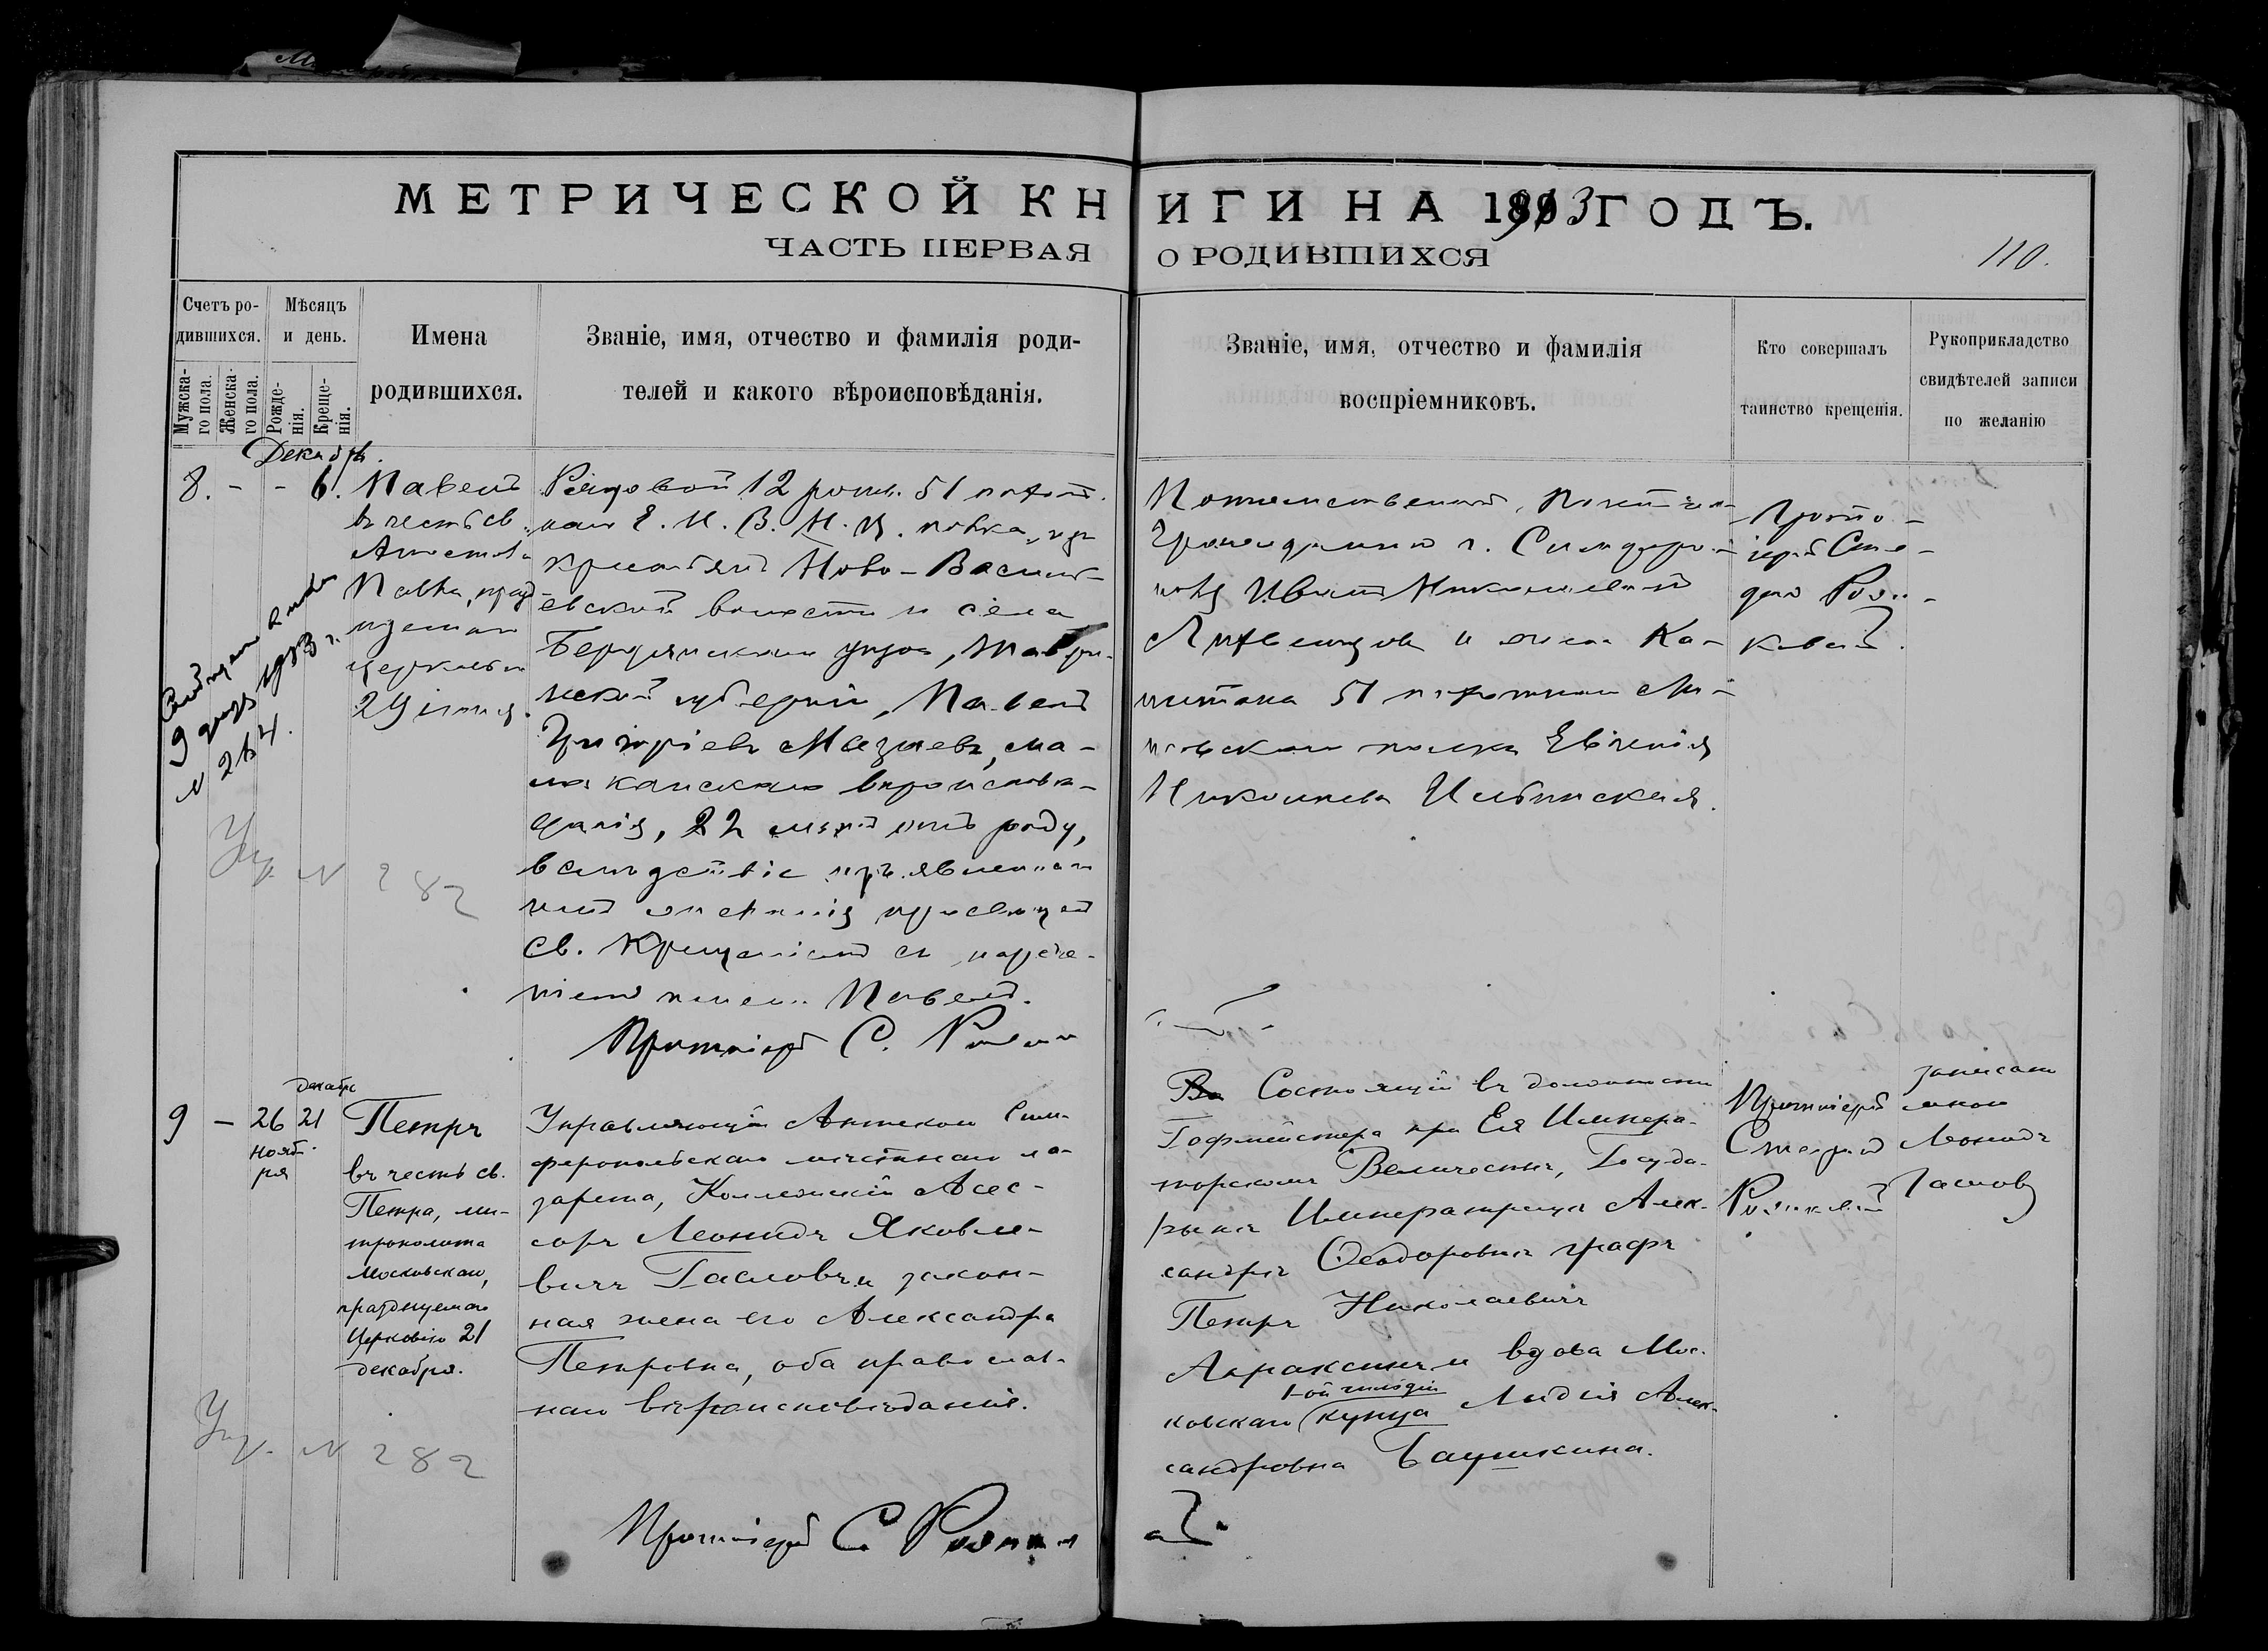 МЕТРИЧЕСКОЙ КНИГИ НА 1893 ГОДЪ.
ЧАСТЬ ПЕРВАЯ О РОДИВШИХСЯ
110.
Счетъ ро-
дившихся.
Мужска-
го пола.
Женска-
го пола.
Мѣсяцъ
и день.
Рожде-
нія.
Креще-
нія.
Имена
родившихся.
Званіе, имя, отчество и фамилія роди-
телей и какого вѣроисповѣданія.
Званіе, имя, отчество и фамилія
воспріемниковъ.
Кто совершалъ
таинство крещенія.
Рукоприкладство
свидѣтелей записи
по желанію
Декабрь.
8. - - 6.
Павелъ
въ честь св.
Апостола
Павла, празд-
нуемаго
церковью
29 іюня.
9
1913 г.
N 264.
Рядовой 12 роты 51 пѣхот.
наго Е. И. В. Н. Ц. полка, изъ
крестьянъ Ново-Василь-
евской волости и села
Бердянскаго уѣзда, Таври-
ческой губерніи, Павелъ
Григоріевъ Мазаевъ, мо-
локанскаго вѣроисповѣ-
данія, 22 лѣтъ отъ роду,
вслѣдствіе изъявленнаго
имъ желанія просвѣщенъ
св. Крещеніемъ съ нарече-
ніемъ имени Павелъ.
Протоіерей С.
N 282
Потомственный Почетный
Гражданинъ г. Симферо-
поля Иванъ Николаевичъ
и жена Ка-
питана 51 пѣхотнаго Ли-
товскаго полка Евгенія
Николаева Ильинская.
Прото-
іерей Сте-
фанъ
9 - 26 21
декабрь
нояб-
ря
Петръ
въ честь св.
Петра, ми-
трополита
Московскаго,
празднуемаго
Церковію 21
декабря.
Управляющій Аптекою Сим-
феропольскаго мѣстнаго ла-
зарета, Коллежскій Асес-
соръ Леонидъ Яковле-
вичъ Гасловъ и закон-
ная жена его Александра
Петровна, оба православ-
наго вѣроисповѣданія.
Протоіерей С.
N 282
Состоящій въ должности
Гофмейстера при Ея Импера-
торскомъ Величествѣ, Госуда-
рынѣ Императрицѣ Алек-
сандрѣ Ѳеодоровнѣ графъ
Петръ Николаевичъ
Апраксинъ и вдова Мос-
ковскаго 1-ой гильдіи купца Лидія Алек-
сандровна Баушкина.
Протоіерей
Стефанъ
записано
мною
Леонидъ
Гасловъ